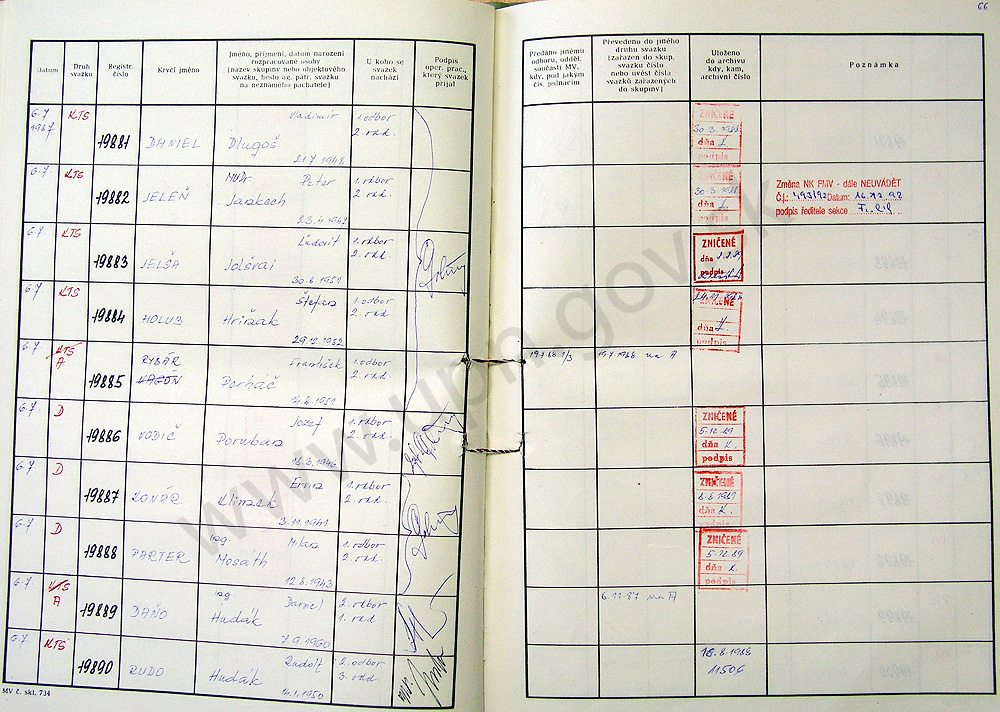 66
Datum
Druh svazku
Registr. číslo
Krycí jméno
Jméno, příjmení, datum narození rozpracované osoby (název skupiny nebo objektového svazku, heslo ag. pátr. svazku na neznámého pachatele)
U koho se svazek nachází
Podpis oper. prac., který svazek přijal
Předáno jinému odboru, odděl. součásti MV, kdy, pod jakým čís. jednacím
Převedeno do jiného druhu svazku (zařazen do skup. svazku číslo nebo uvést čísla svazků zařazených do skupiny)
Uloženo do archivu kdy, kam, archivní číslo
Poznámka
6.7 1987 KTS 19881 DANIEL Vladimír Dlugoš 21.7.1948 1.odbor 2.odd.
ZNIČENÉ 30.3.1988 dňa podpis
6.7. KTS 19882 JELEŇ MUDr. Peter 23.4.1947 1.odbor 2.odd.
ZNIČENÉ 30.3.1988 dňa podpis
Změna NK FMV - dále NEUVÁDĚT
Č.j.: 493/92 Datum: 16.12.92
podpis ředitele sekce
6.7. KTS 19883 JELŠA Ľudovít 30.6.1951 1.odbor 2.odd.
ZNIČENÉ dňa podpis
6.7 KTS 19884 HOLUB Štefan 29.12.1952 1.odbor 2.odd.
ZNIČENÉ dňa podpis
6.7 KTS A 19885 RYBÁR VAGÓN František Porháč 14.8.1951 1.odbor 2.odd.
19.7.88 19.7.1988 na A
6.7. D 19886 VODIČ Jozef Poruban 1.odbor 2.odd.
ZNIČENÉ 5.12.89 dňa podpis
6.7 D 19887 KOVÁČ Ervin Klimek 3.11.1941 1.odbor 2.odd.
ZNIČENÉ dňa podpis
6.7 D 19888 PARTER Ing. Milan Mosáth 12.8.1943 1.odbor 2.odd.
ZNIČENÉ 5.12.89 dňa podpis
6.7. KTS A 19889 DAŇO Ing. Daniel Hudák 7.9.1960 2.odbor 1.odd.
6.11.87 na A
6.7. KTS 19890 RUDO Rudolf Hudák 14.1.1950 2.odbor 3.odd.
8.1988
11506
MV č. skl. 734